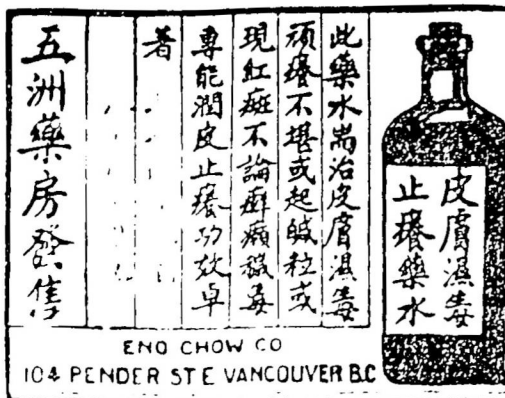 皮膚濕毒
止癢藥水
此藥水耑治皮膚濕毒
頑癢不堪或起鹹粒或
現紅斑不論癬癩穢毒
專能潤皮止癢功效卓
著
五洲藥房發售
ENG CHOW CO
104 PENDER ST E VANCOUVER B.C